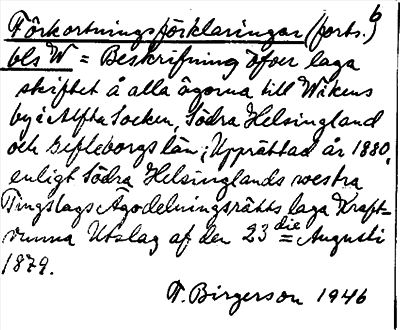 6
Förkortningsförklaringar (forts.)
bls W = Beskrifning öfver laga
skiftet å alla ägorna till Wikens
by i Alfta Socken, Södra Helsingland
och Gefleborgs län; Upprättad år 1880,
enligt Södra Helsinglands westra
Tingslags Ägodelningsrätts laga Kraft-
vunna Utslag af den 23die Augusti
1879.
F. Birgerson 1946